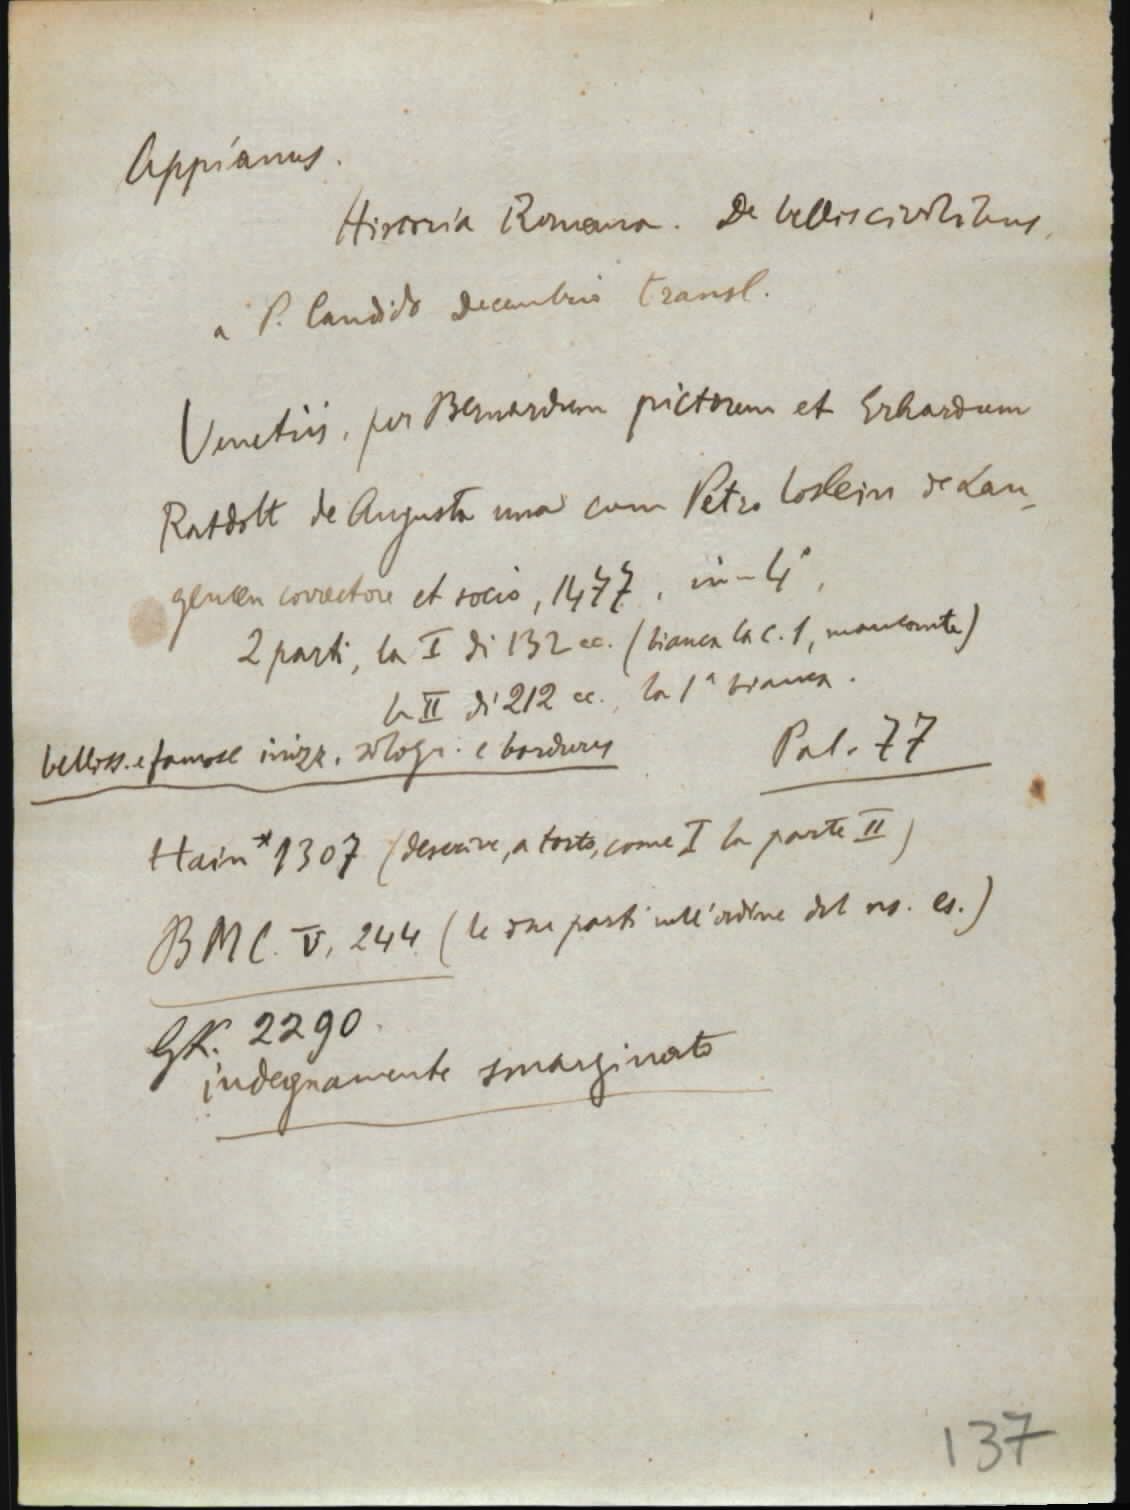 Appianus.
Historia Romana. De bellis civilibus,
a P. Candido Decembrio transl.
Venetiis, per Bernardum pictorem et Erhardum
Ratdolt de Augusta una cum Petro Loslein de Lan-
gencen correctore et socio, 1477, in-4°,
2 parti, la I di 132 cc. (bianca la c. 1, mancante)
la II di 212 cc., la 1ª bianca.
belliss. e famose inizz. silogr. e bordures
Pal. 77
Hain *1307 (descrive, a torto, come I la parte II)
BMC. V, 244 (le due parti nell'ordine del ns. es.)
GK. 2290.
indegnamente smarginato
137